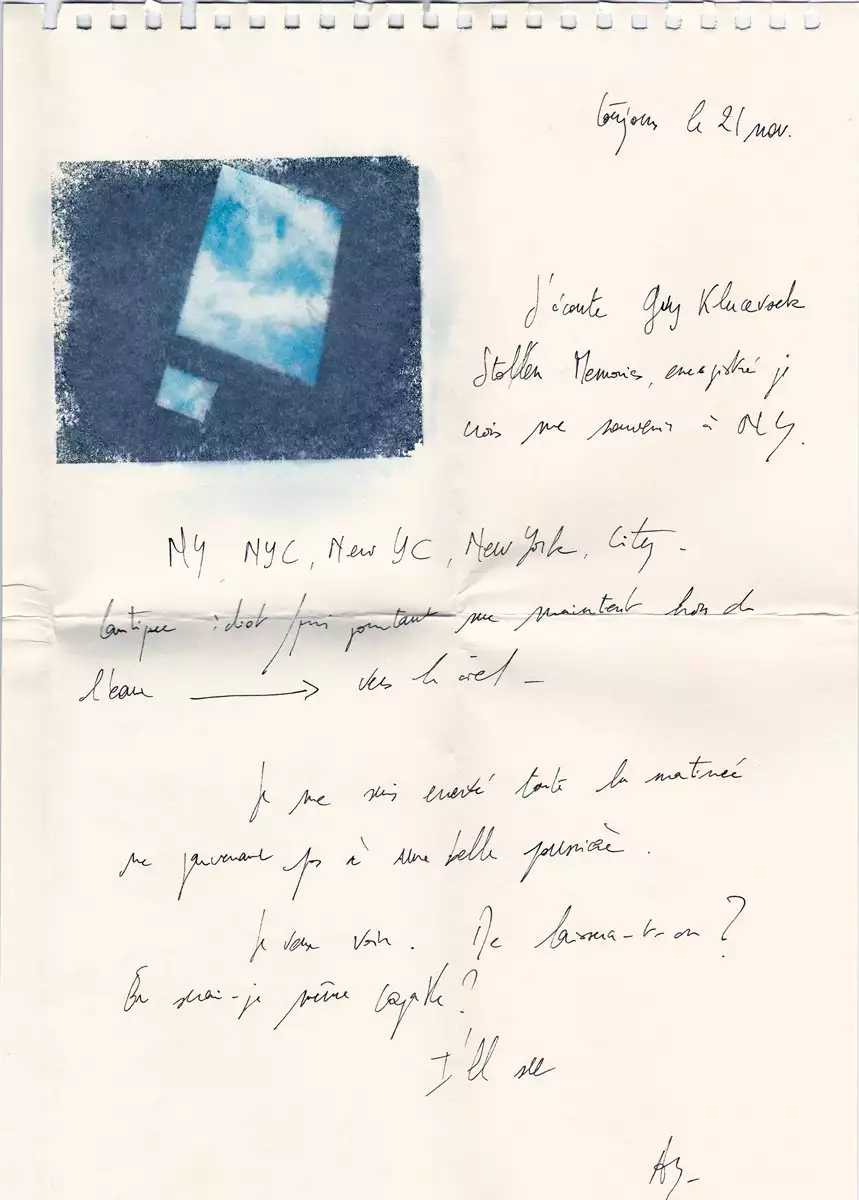 toujours le 21 nov.
J'écoute Guy Klucevsek
Stollen Memories, enregistré je
crois me souvenir à NY.
NY, NYC, New YC, New York, City -
idiot qui pourtant me maintient hors de
l'eau → vers le ciel -
Je me suis énervé toute la matinée
ne parvenant pas à une belle
Je veux voir. Me laissera-t-on ?
En serai-je même capable ?
I'll see